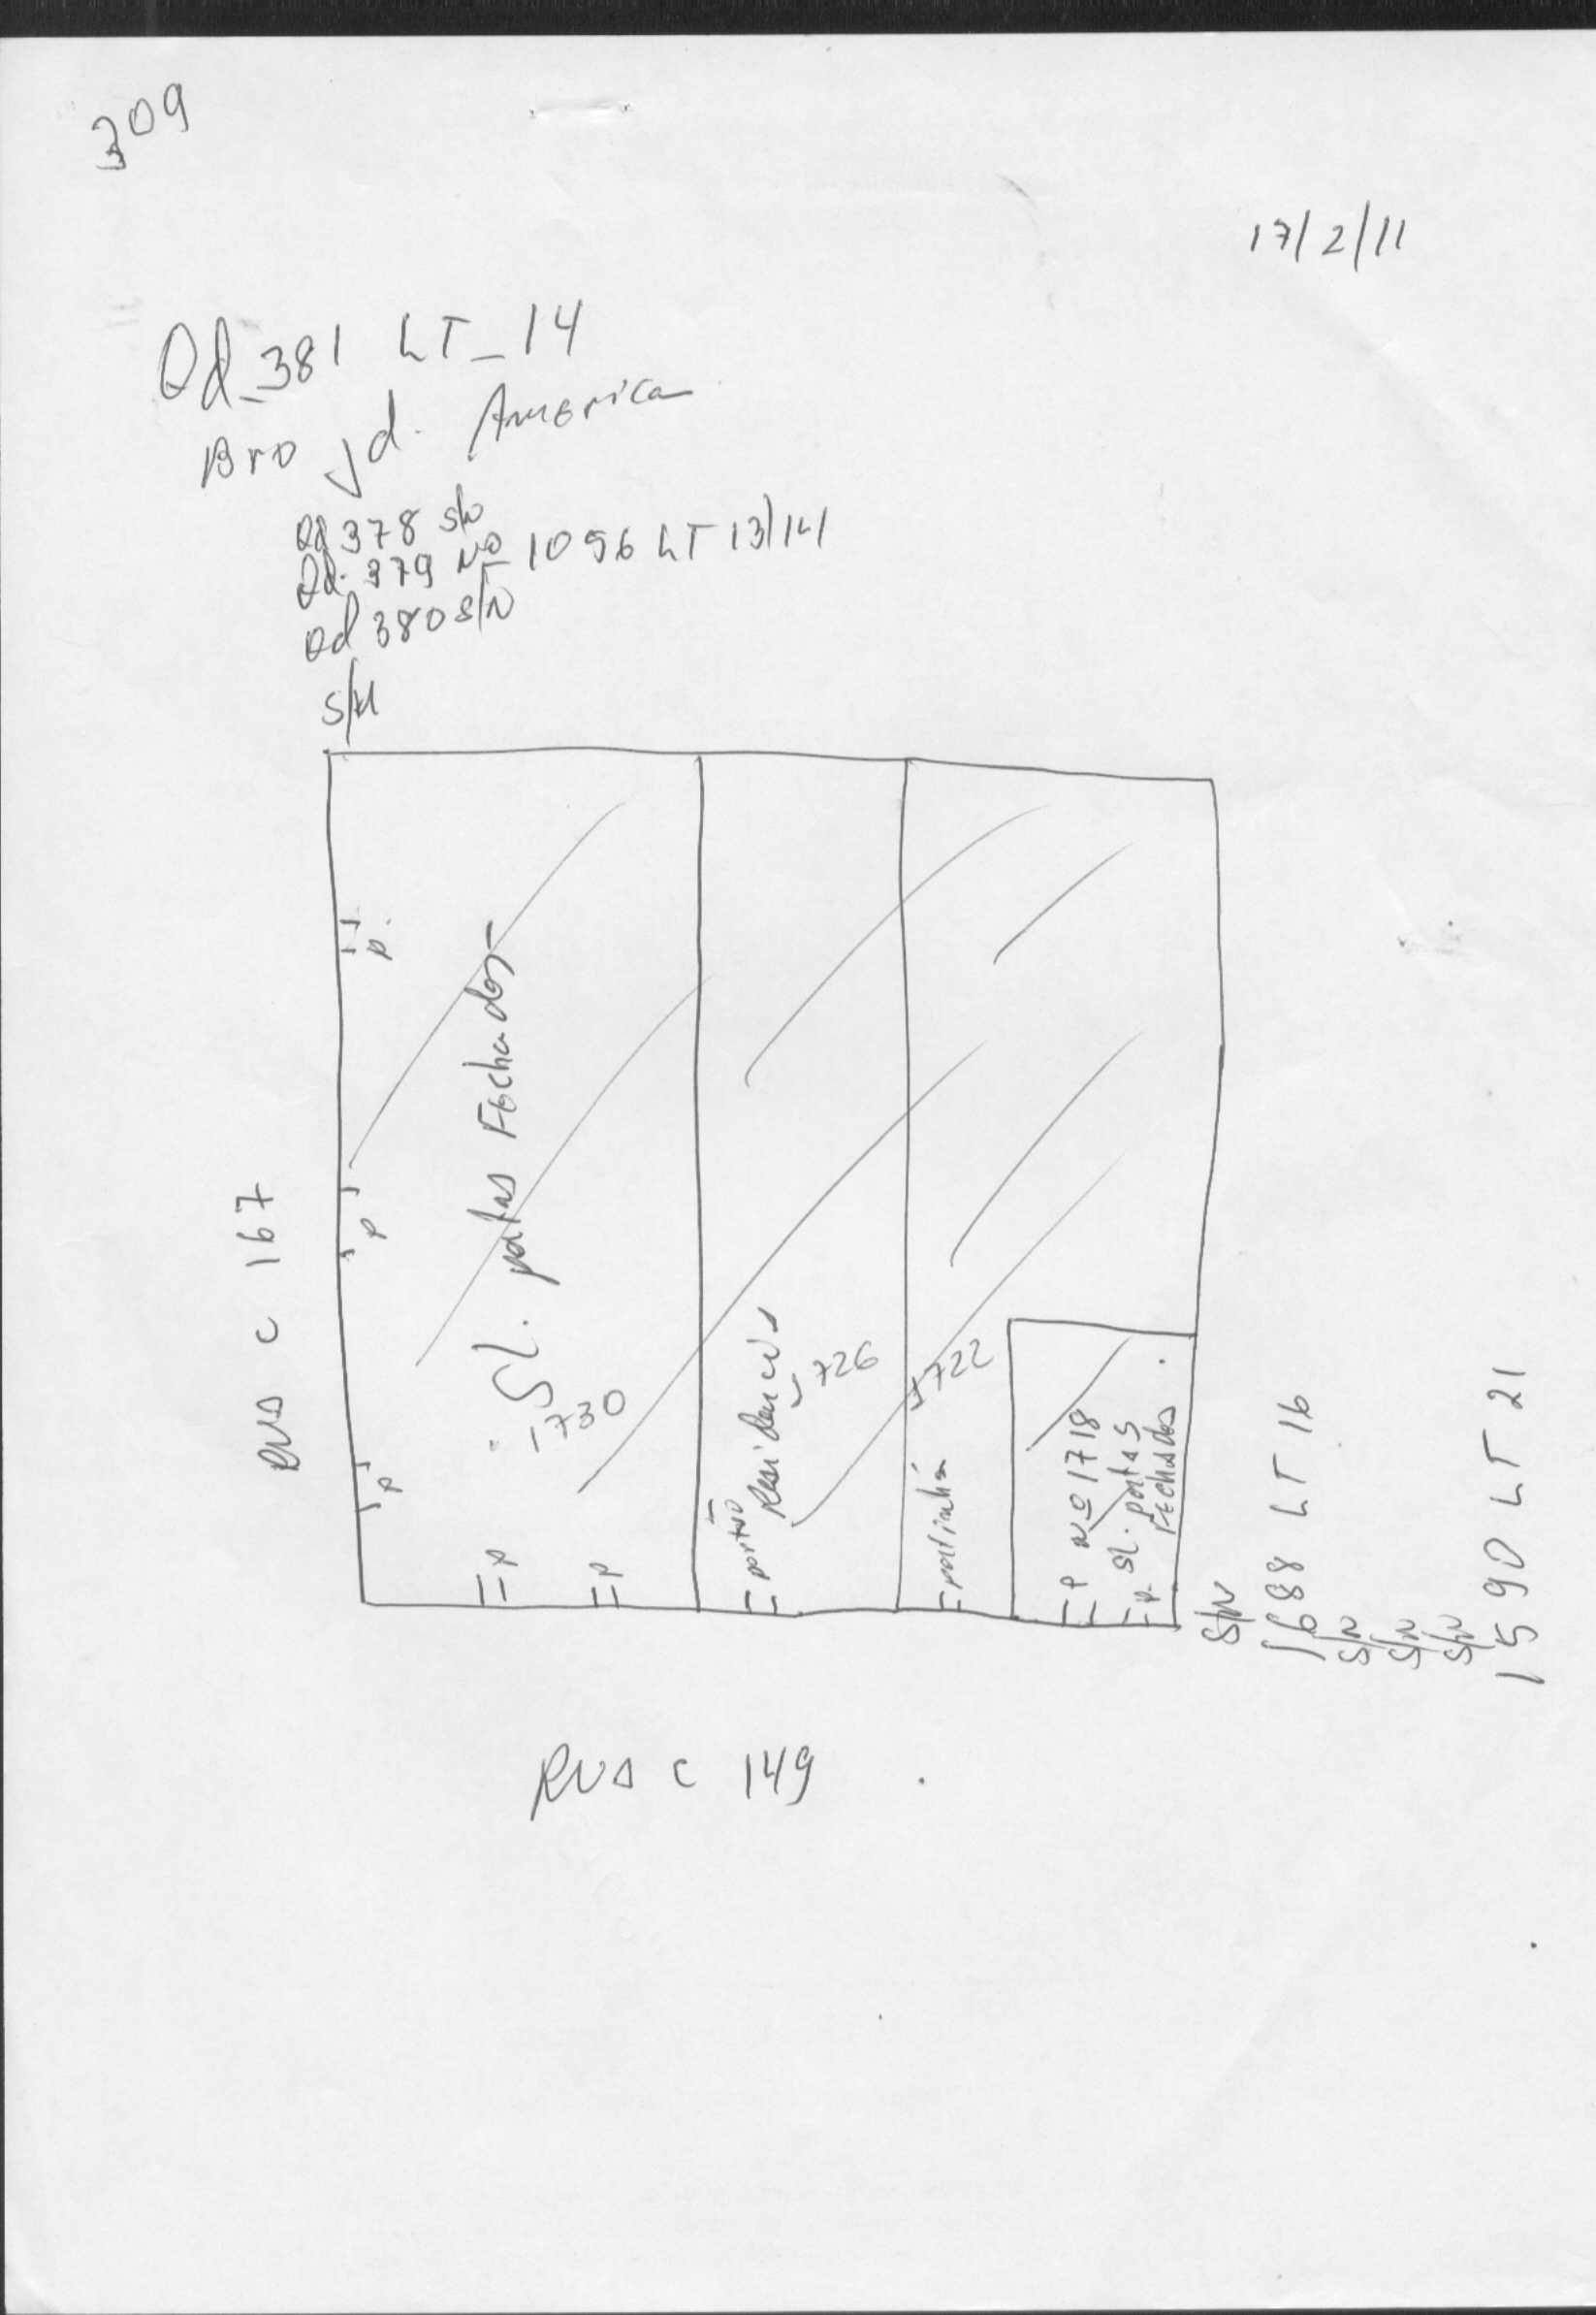 209
17/2/11
Qd_381 LT_14
Bro Jd. America
Qd 378 S/N
Qd. 379 Nº 1096 LT 13/14
Qd 380 S/N
S/N
RUA C 167
P.
P
P
SL. portas Fechados
1730
P
P
portão
Residencia
1726
portinhã
1722
P Nº 1718
P. SL. portas
Fechados
S/N
1688 LT 16
S/N
S/N
S/N
1590 LT 21
RUA C 149